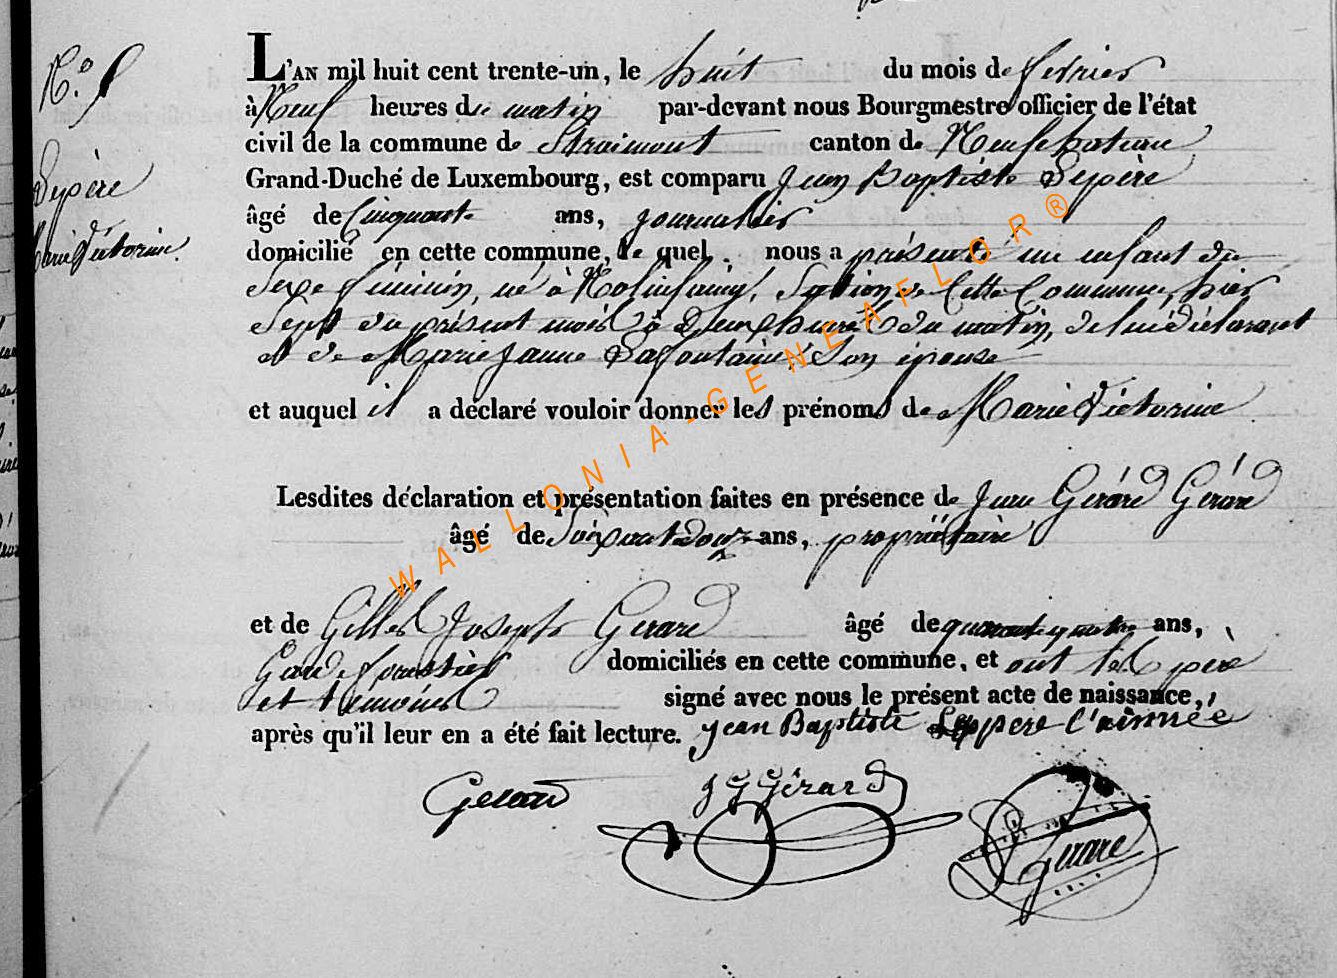 N.° 5
Lepère
Marie Victorine.
L'AN mil huit cent trente-un, le huit du mois de fevrier
à Neuf heures du matin par-devant nous Bourgmestre officier de l'état
civil de la commune de Straimont canton de Neufchateau
Grand-Duché de Luxembourg, est comparu Jean Baptiste Lepère
âgé de Cinquante ans, journalier
domicilié en cette commune, le quel nous a présenté un enfant du
Sexe féminin, né à Molinfaing, Section de Cette Commune, hier
Sept du présent mois à Deux heures du matin, de lui déclarant
et de Marie Jeanne Lafontaine, Son épouse
et auquel il a déclaré vouloir donner les prénoms de Marie Victorine
Lesdites déclaration et présentation faites en présence de Jean Gérard Gérard
âgé de Soixante douze ans, propriétaire
et de Gilles Joseph Gerard âgé de quarante quatre ans,
Garde forestier domiciliés en cette commune, et ont les père
et témoins signé avec nous le présent acte de naissance,
après qu'il leur en a été fait lecture. jean Baptiste Leppere l'ainnée
Gerard J G Gérard Gerard
WALLONIA-GENEAFLOR®